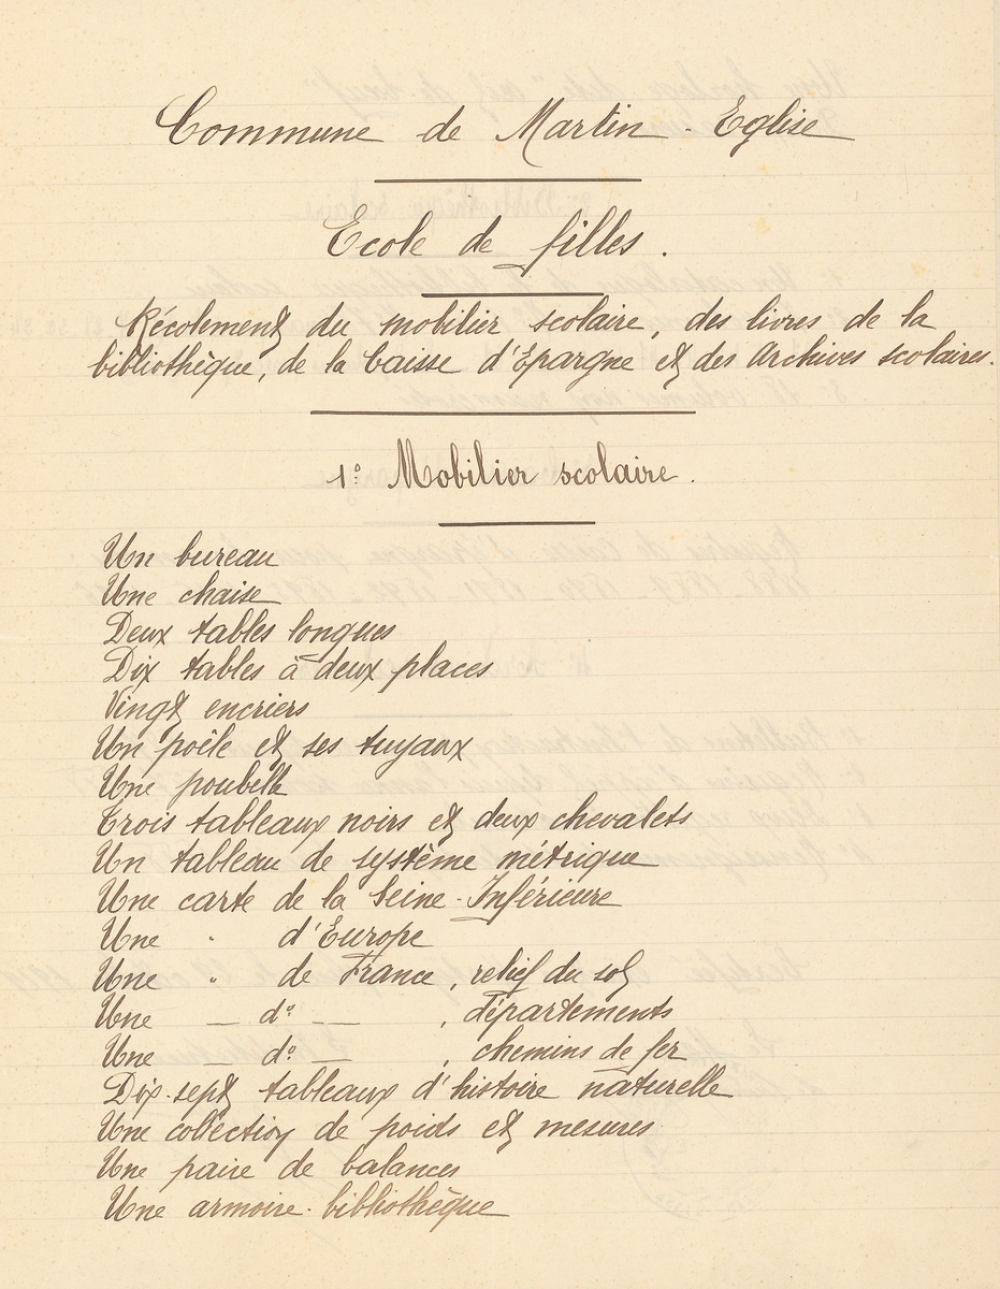 Commune de Martin-Eglise
Ecole de filles.
Récolement du mobilier scolaire, des livres de la
bibliothèque, de la Caisse d'Epargne et des Archives scolaires.
1º Mobilier scolaire.
Un bureau
Une chaise
Deux tables longues
Dix tables à deux places
Vingt encriers
Un poêle et ses tuyaux
Une poubelle
Trois tableaux noirs et deux chevalets
Un tableau de système métrique
Une carte de la Seine-Inférieure
Une " d'Europe
Une " de France, relief du sol
Une — dº — , départements
Une — dº — , chemins de fer
Dix-sept tableaux d'histoire naturelle
Une collection de poids et mesures
Une paire de balances
Une armoire-bibliothèque